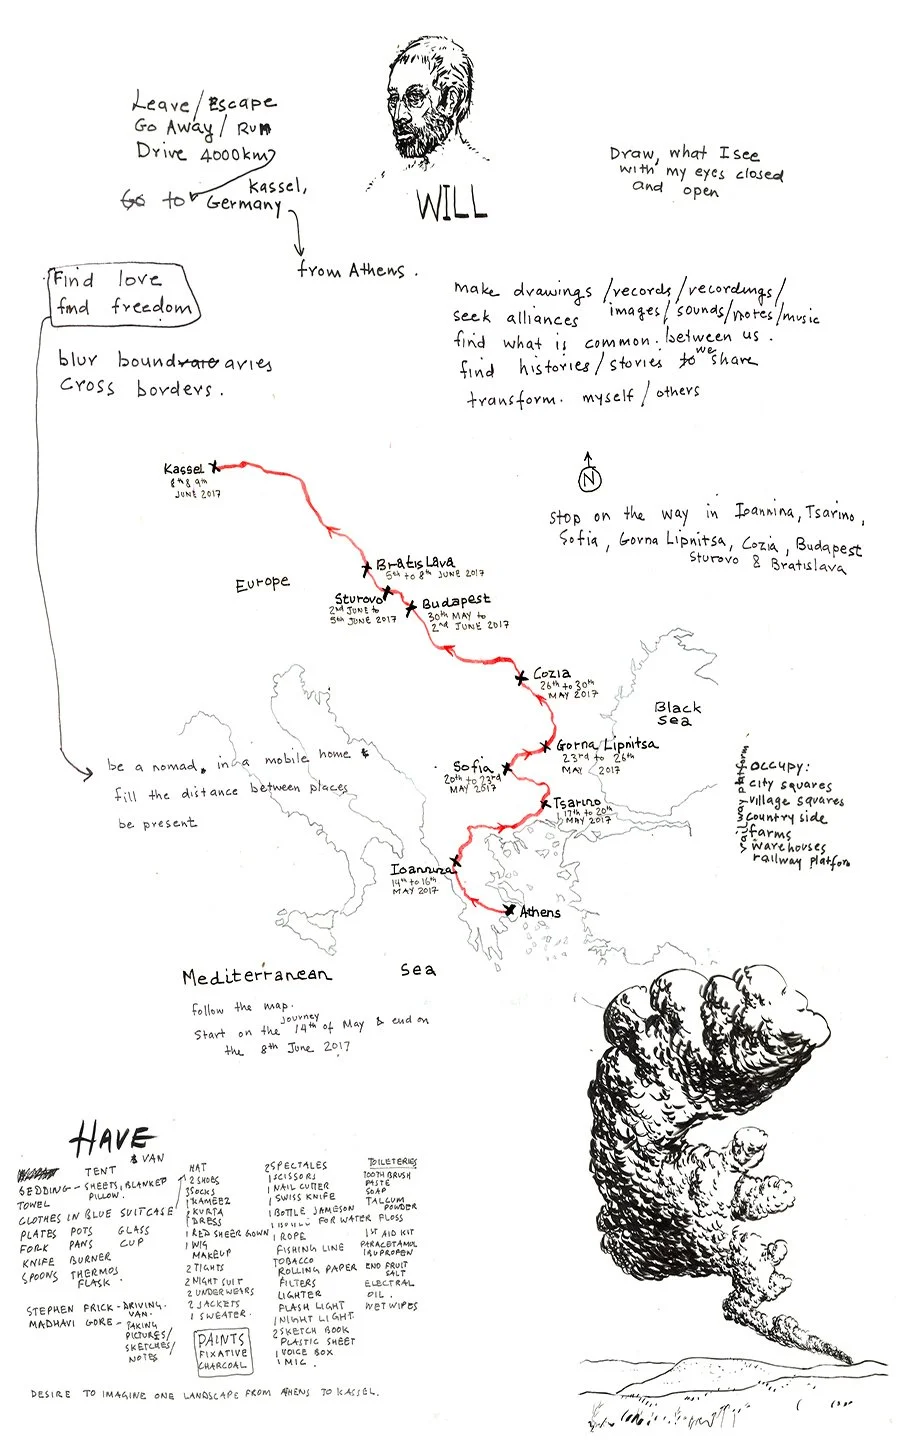 Leave / Escape
Go Away / Run
Drive 4000km
Go to Kassel,
Germany
from Athens.
WILL
Draw, what I see
with my eyes closed
and open
Find love
find freedom
blur boundaries
Cross borders.
make drawings / records / recordings /
seek alliances images / sounds / notes / music
find what is common between us.
find histories / stories we share
transform. myself / others
N
Stop on the way in Ioannina, Tsarino,
Sofia, Gorna Lipnitsa, Cozia, Budapest
Sturovo & Bratislava
Kassel
8th & 9th
JUNE 2017
Bratislava
5th to 8th JUNE 2017
Europe
Sturovo
2nd JUNE to
5th JUNE 2017
Budapest
30th MAY to
2nd JUNE 2017
Cozia
26th to 30th
MAY 2017
Black
Sea
Gorna Lipnitsa
23rd to 26th
MAY 2017
Sofia
20th to 23rd
MAY 2017
Tsarino
17th to 20th
MAY 2017
Ioannina
14th to 16th
MAY 2017
Athens
be a nomad. in a mobile home &
fill the distance between places
be present
railway platform
OCCUPY:
city squares
village squares
country side
farms
warehouses
railway platform
Mediterranean Sea
follow the map.
Start on the journey 14th of May & end on
the 8th June 2017
HAVE
& VAN
TENT
BEDDING - SHEETS, BLANKET
PILLOW.
TOWEL
CLOTHES IN BLUE SUITCASE
PLATES POTS GLASS
FORK PANS CUP
KNIFE BURNER
SPOONS THERMOS
FLASK.
STEPHEN FRICK - DRIVING.
VAN.
MADHAVI GORE - TAKING
PICTURES /
SKETCHES /
NOTES
HAT
2 SHOES
3 SOCKS
1 KAMEEZ
1 KURTA
1 DRESS
1 RED SHEER GOWN
1 WIG
MAKEUP
2 TIGHTS
2 NIGHT SUIT
2 UNDERWEARS
2 JACKETS
1 SWEATER.
PAINTS
FIXATIVE
CHARCOAL
2 SPECTALES
1 SCISSORS
1 NAIL CUTTER
1 SWISS KNIFE
1 BOTTLE JAMESON
1 BOTTLE FOR WATER
1 ROPE
FISHING LINE
TOBACCO
ROLLING PAPER
FILTERS
LIGHTER
FLASH LIGHT
1 NIGHT LIGHT
2 SKETCH BOOK
PLASTIC SHEET
1 VOICE BOX
1 MIC.
TOILETERIES
TOOTH BRUSH
PASTE
SOAP
TALCUM
POWDER
FLOSS
1ST AID KIT
PARACETAMOL
IBUPROFEN
ENO FRUIT
SALT
ELECTRAL
OIL.
WET WIPES
DESIRE TO IMAGINE ONE LANDSCAPE FROM ATHENS TO KASSEL.